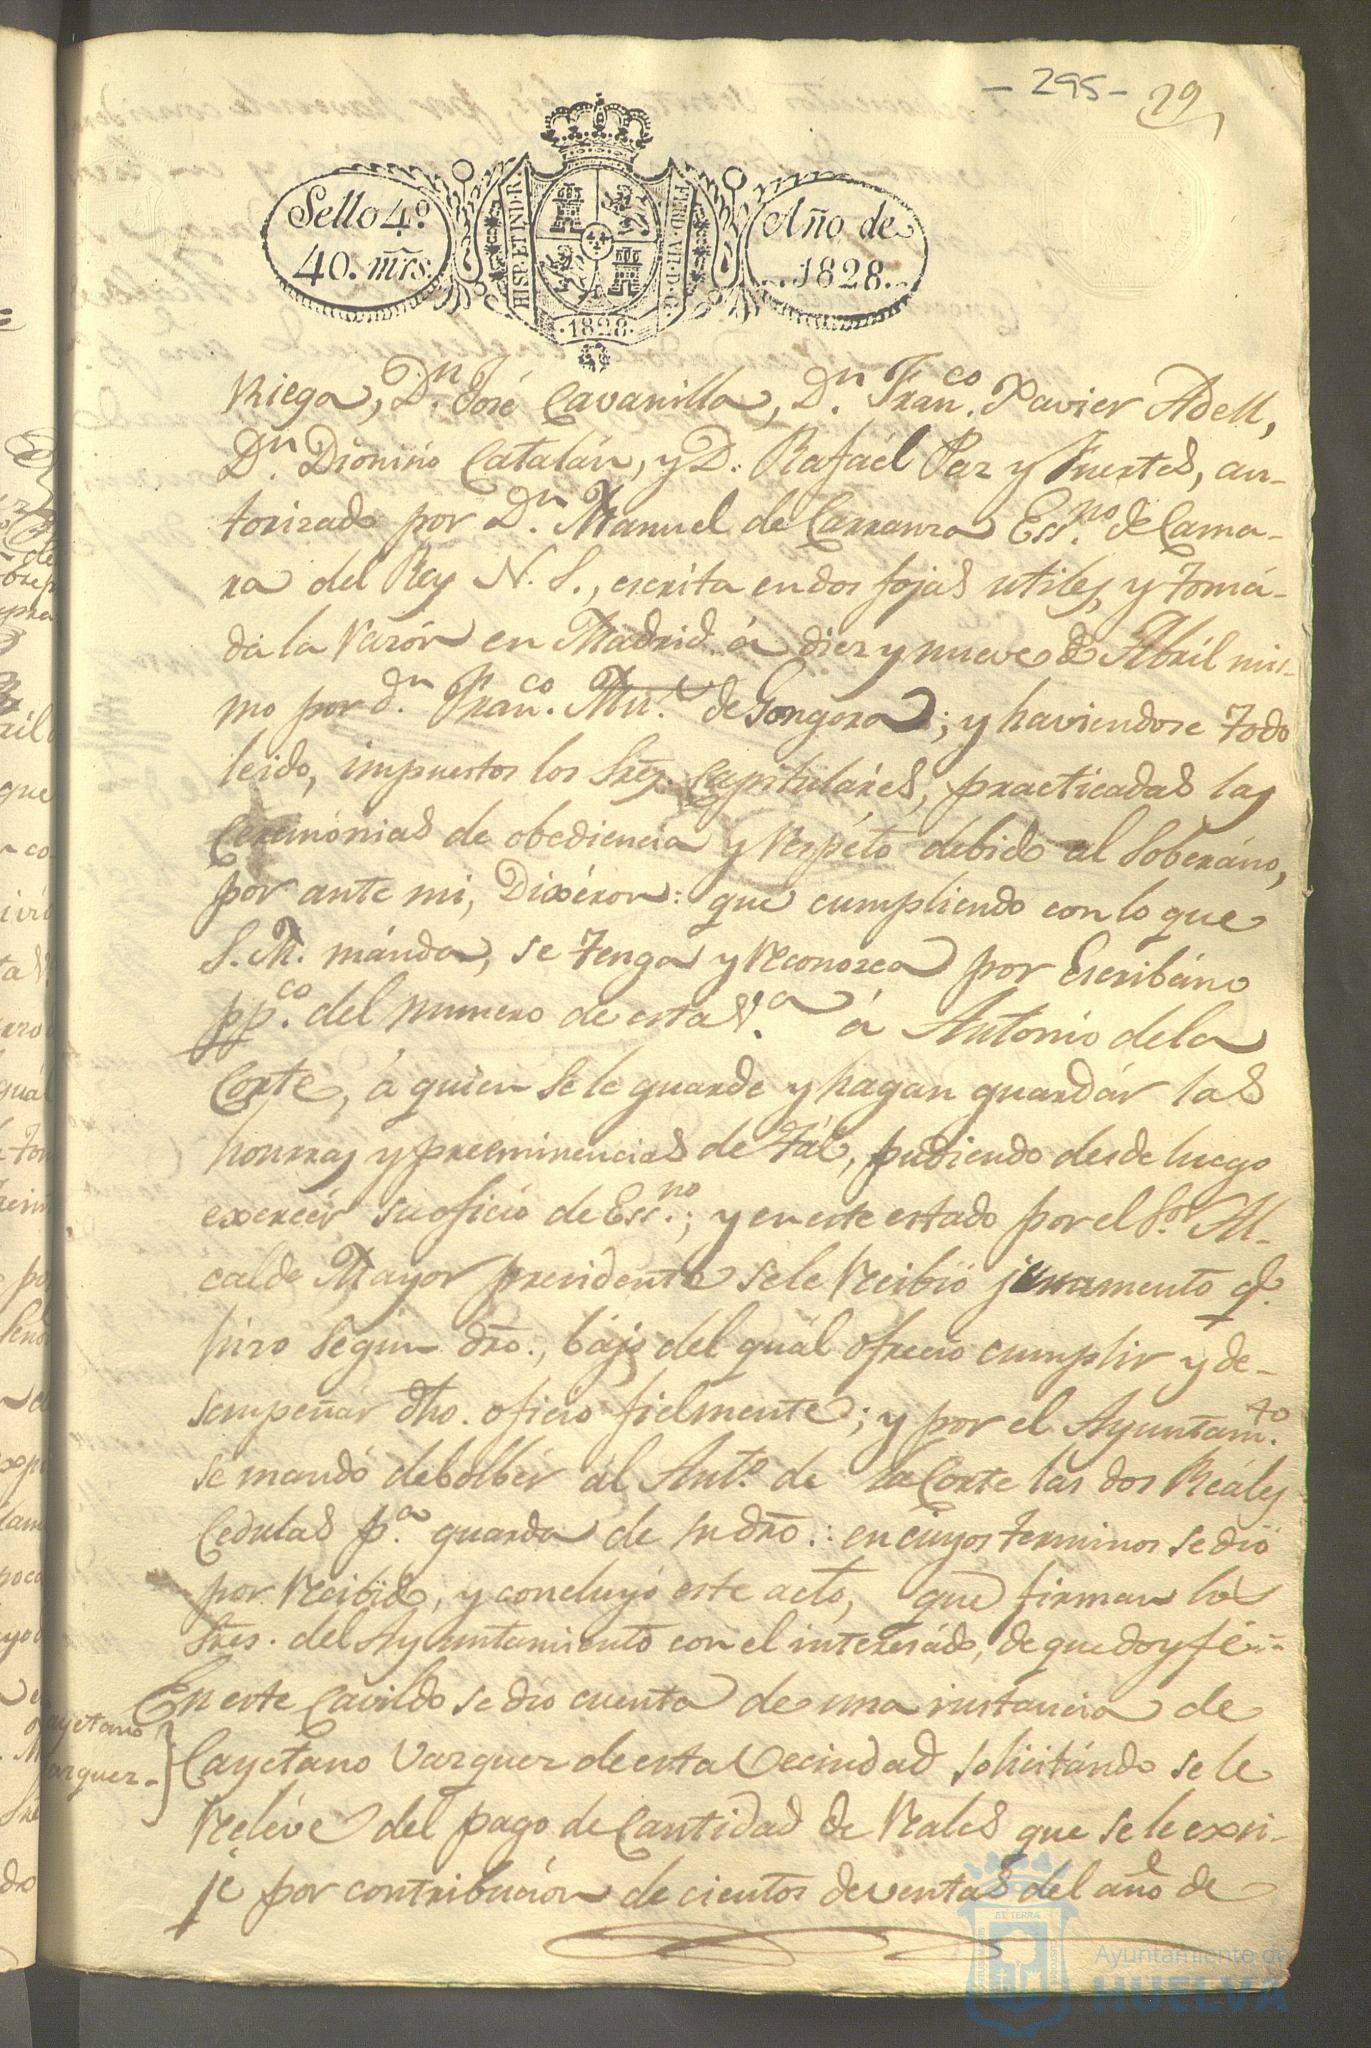 - 295 -
29
Sello 4º.
40. mrs.
HISP. ET IND. R
FERD. VII. D. G.
Año de
1828.
.1828.
Riega, Dn. José Cavanilla, Dn. Franco. Xavier Adell,
Dn. Dionisio Catalán, y D. Rafaél Paz y Fuertes, au-
torizado por Dn. Manuel de Carranza Essno. de Cama-
ra del Rey N. S., escrita en dos fojas utiles, y tomá-
da la razón en Madrid á diez y nueve de Abril mis-
mo por dn. Franco. de Gongora; y haviendose todo
leido, impuestos los Sres. Capituláres, practicadas las
Ceremónias de obediencia y respéto debido al Soberáno,
por ante mi, Dixéron: que cumpliendo con lo que
S. M. mánda, se tenga y reconozca por Escribáno
ppco. del numero de esta Va. á Antonio de la
Corte, á quien se le guarde y hagan guardár las
honrras y preeminencias de tál, pudiendo desde luego
exercér su oficio de Essno.; y en este estado por el Sor. Al-
calde Mayor presidente se le recibió juramento q.
hizo segun dro., bájo del quál ofrecio cumplir y de-
sempeñár dho. oficio fielmente; y por el Ayuntamto.
se mandó debolbér al Anto. de la Corte las dos Reáles
Cedulas pa. guarda de su dro.: en cuyos terminos se dió
por recibido, y concluyó este acto, que firman los
Sres. del Ayuntamiento con el interesádo, de que doy fé.
En este Cavildo se dio cuenta de una instancia de
Cayetano
Vazquez.
Cayetano Vazquez de esta Vecindad solicitándo se le
reléve del pago de Cantidad de reales que se le exri-
je por contribución de cientos de ventas del año de
Ayuntamiento de
HUELVA